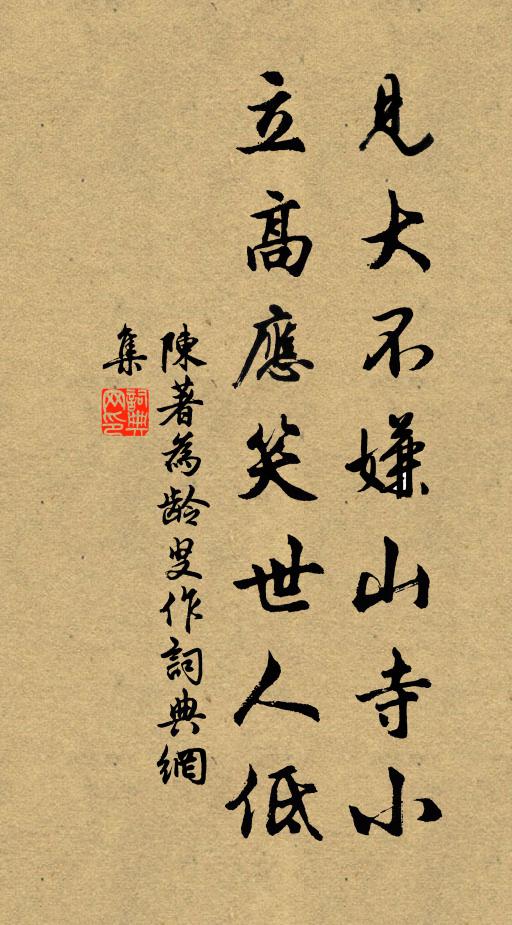 見大不嫌山寺小
立高應笑世人低
陳著為齡叟作詞典網
集
詞典
網印